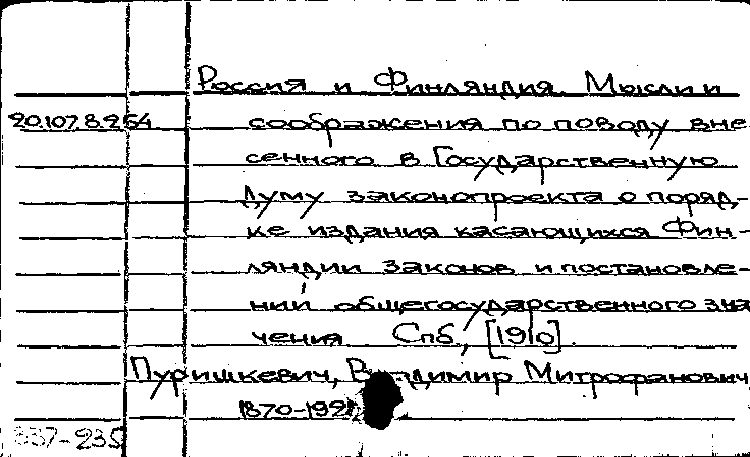 Россия и Финляндия. Мысли и
20.107.8.254 соображения по поводу вне
сенного в Государственную
думу законопроекта о поряд-
ке издания касающихся Фин-
ляндии законов и постановле-
ний общегосударственного зна
чения Спб, [1910]
Пуришкевич, Владимир Митрофанович
1870-192
337-235